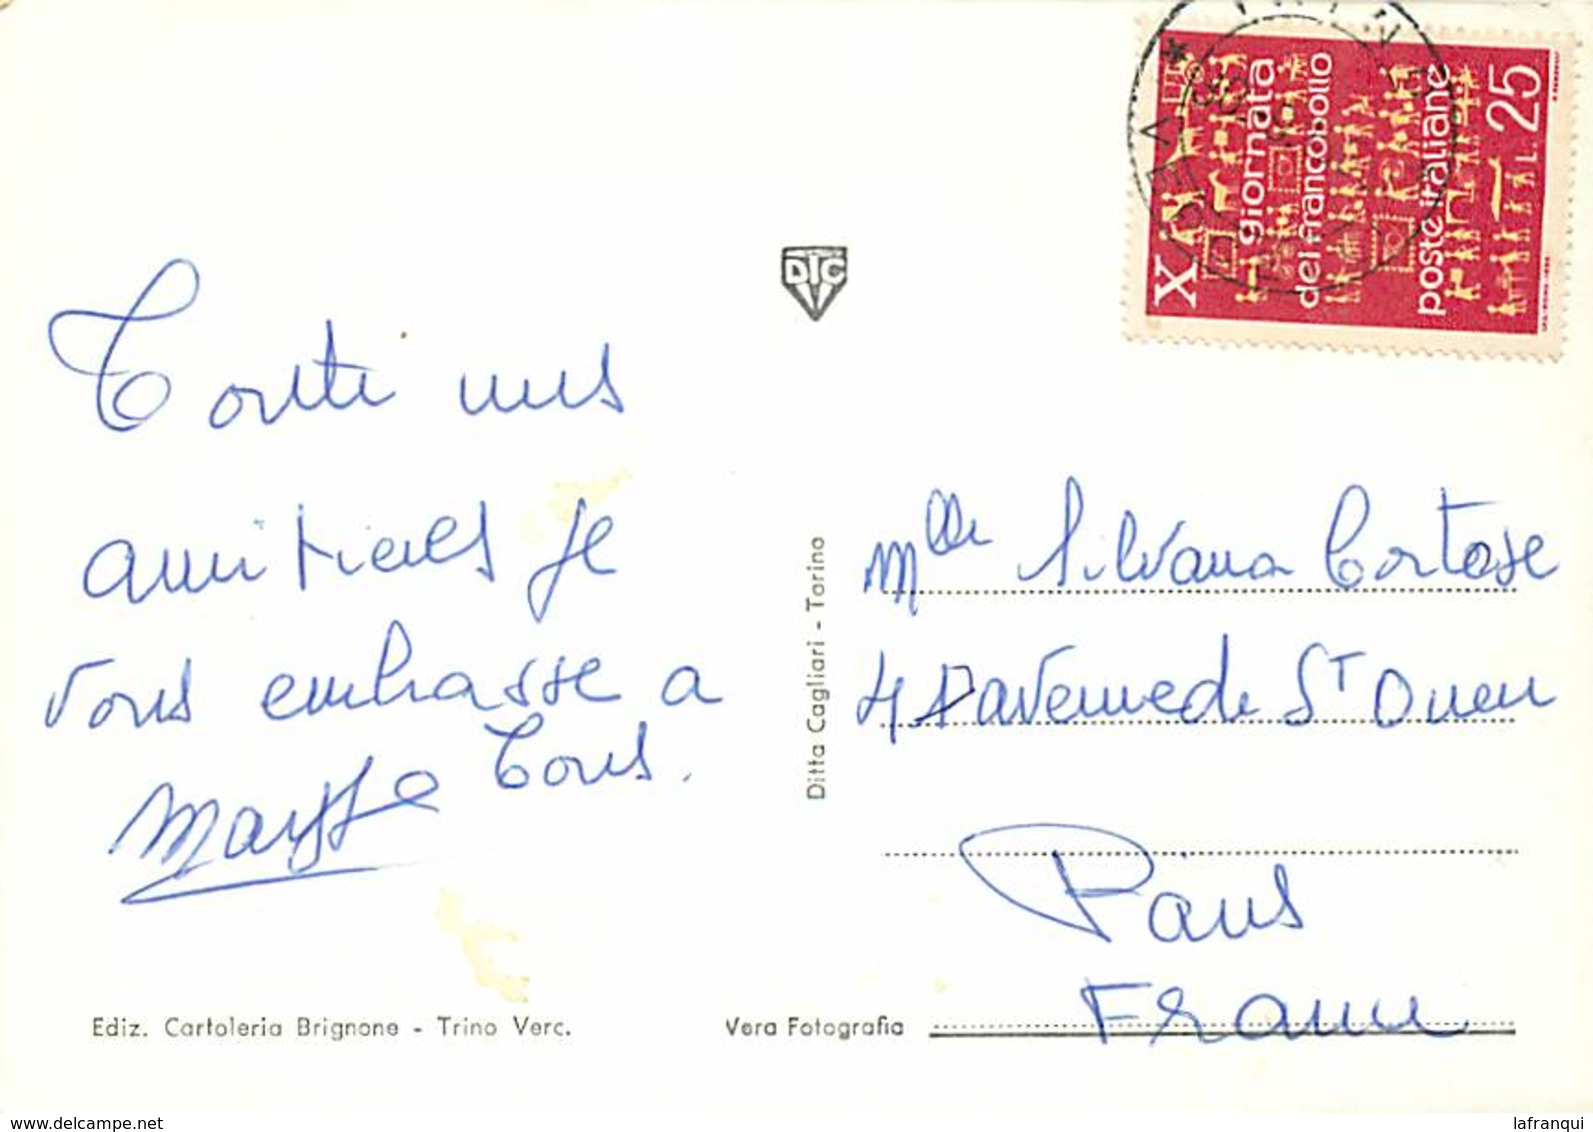 X giornata
del francobollo
poste italiane
L. 25
DTC
Toute mes
amitiées Je
vous embrasse a
Tous.
Ditta Cagliari - Torino
Mlle Silvana Cortese
47 avenue de St Ouen
Paris
France
Ediz. Cartoleria Brignone - Trino Verc.
Vera Fotografia
www.delcampe.net
lafranqui